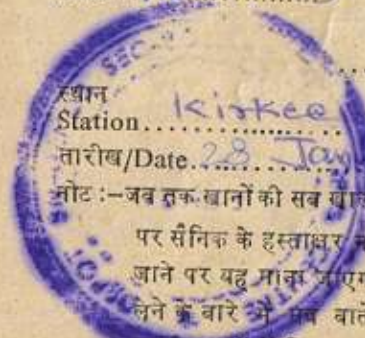 स्थान
Station.......Kirkee
तारीख/Date..28 Jan
नोट :–जब तक खानों की सब
पर सैनिक के हस्ताक्षर
जाने पर यह माना जाएग
लेने के बारे में सब बातें